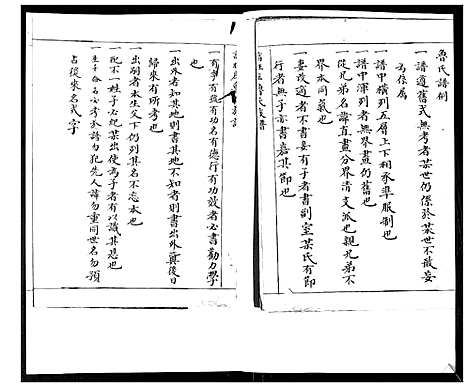 魯氏譜例
一譜遵舊式無考者某世仍係於某世不敢妄
為位属
一譜中横列五層上下相承準服制也
一譜中深列者無舉畫仍舊也
一從兄弟名諱直畫分界清支派也親兄弟不
界本同氣也
一妻改適者不書妾有子者書副室某氏有節
行者無子亦書嘉其節也
一有事有號有功名有德行有功蹟者必書勸力學
也
一出外者知其地則書其地不知者則書出外冀後日
歸來有所考也
一出嗣者本生父下仍列其名不忘本也
一配不一姓子必紀某出使為子者有以識其思也
一生子命名必考祭譜勿犯先人諱勿重同世名勿預
占後來名式字